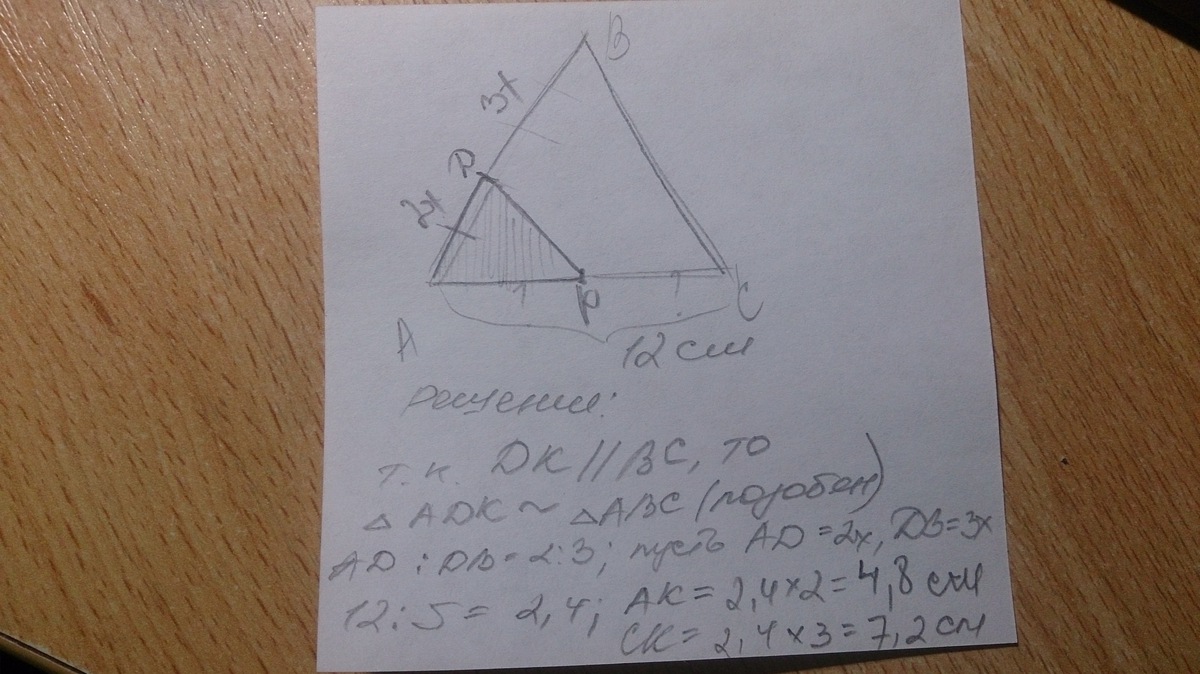 B
3x
D
2x
?
K
?
C
A
12 см
Решение:
т.к. DK // BC, то
△ ADK ~ △ABC (подобен)
AD : DB = 2:3; пусть AD = 2x, DB = 3x
12:5 = 2,4; AK = 2,4 x 2 = 4,8 см
CK = 2,4 x 3 = 7,2 см